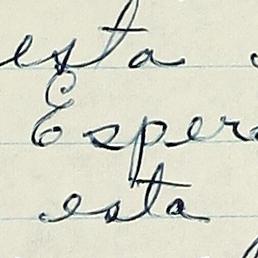 esta
Esper
esta